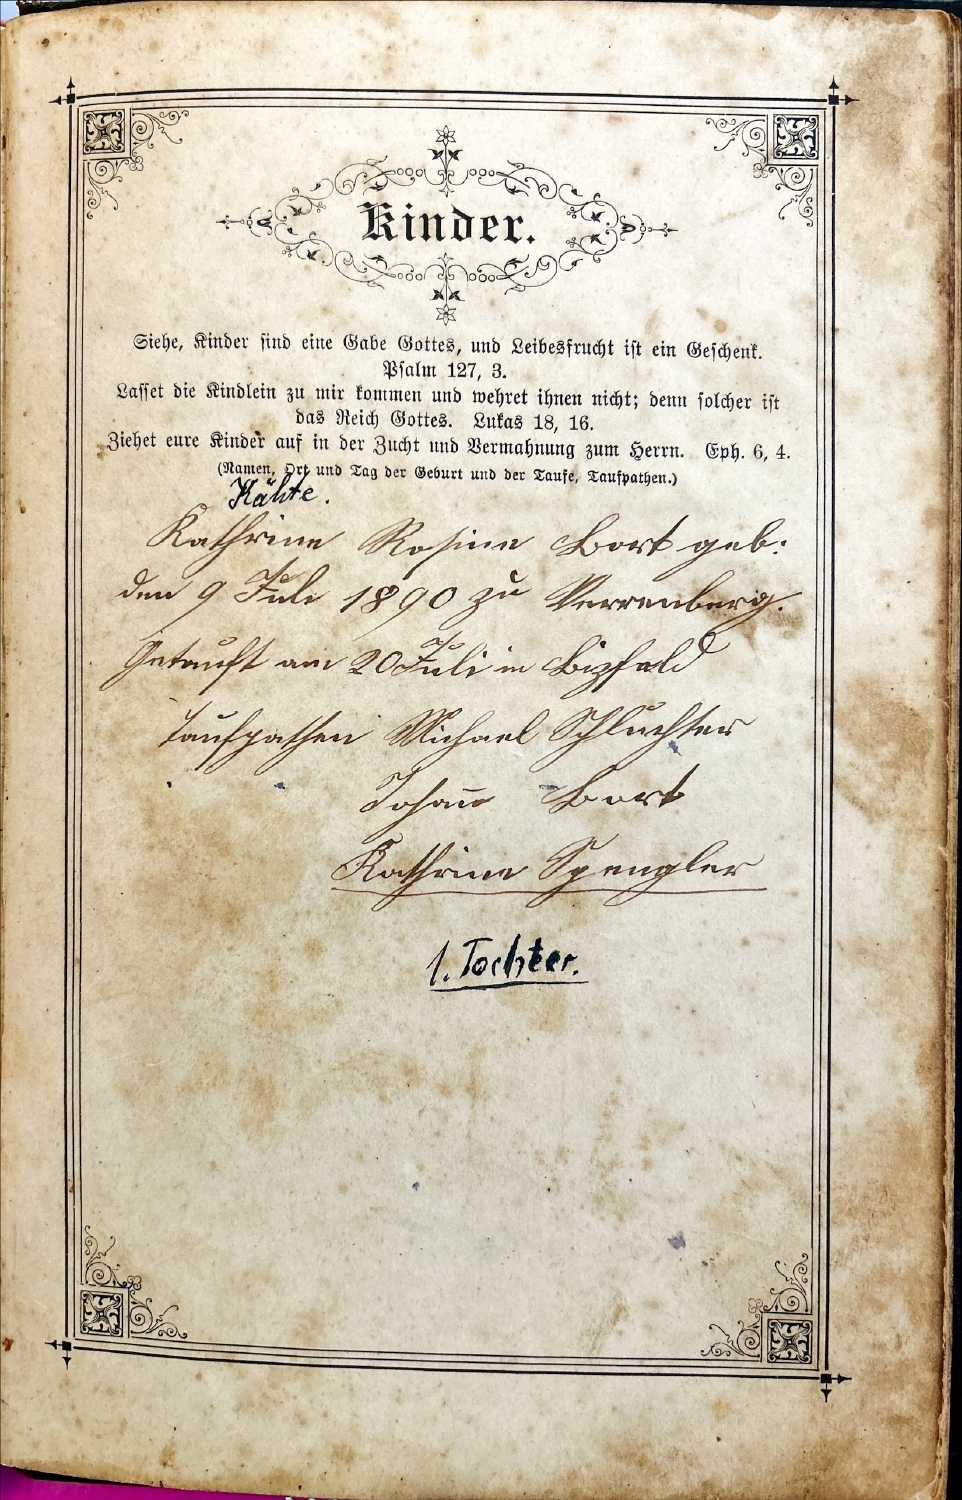 Kinder.
Siehe, Kinder sind eine Gabe Gottes, und Leibesfrucht ist ein Geschenk.
Psalm 127, 3.
Lasset die Kindlein zu mir kommen und wehret ihnen nicht; denn solcher ist
das Reich Gottes. Lukas 18, 16.
Ziehet eure Kinder auf in der Zucht und Vermahnung zum Herrn. Eph. 6, 4.
(Namen, Ort und Tag der Geburt und der Taufe, Taufpathen.)
Käthe.
Kathrine Rosine Bort geb:
den 9 Juli 1890 zu Verrenberg.
Getauft am 20 Juli in Bizfeld
Taufpathen Michael Schluchter
Johan̄ Bort
Kathrine Spengler
1. Tochter.